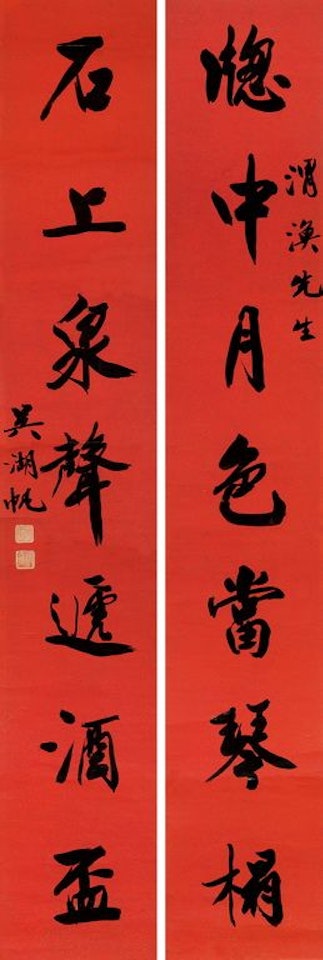 牕中月色當琴榻
渭渙先生
石上泉聲遞酒盃
吳湖帆